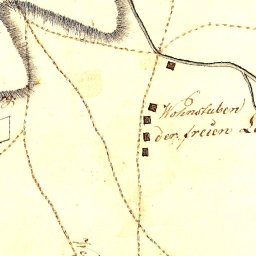 Wohnstuben
der freien